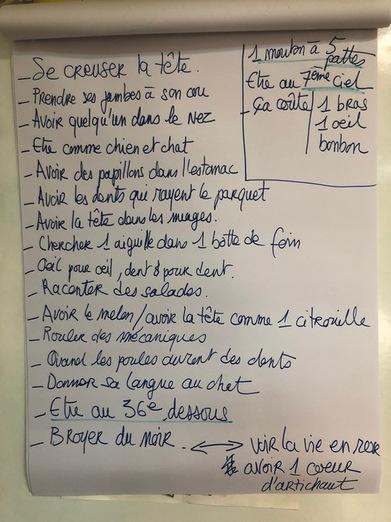 _ Se creuser la tête.
_ Prendre ses jambes à son cou
_ Avoir quelqu'un dans le nez
_ Etre comme chien et chat
_ Avoir des papillons dans l'estomac
_ Avoir les dents qui rayent le parquet
_ Avoir la tête dans les nuages.
_ Chercher 1 aiguille dans 1 bôtte de foin
_ Oeil pour oeil, dent pour dent.
_ Raconter des salades.
_ Avoir le melon/avoir la tête comme 1 citrouille
_ Rouler des mécaniques
_ Quand les poules auront des dents
_ Donner sa langue au chat
_ Etre au 36e dessous
_ Broyer du noir. ↔ voir la vie en rose
avoir 1 coeur
d'artichaut
1 mouton à 5
pattes
Etre au 7ème ciel
_ ça coûte 1 bras
1 oeil
bonbon